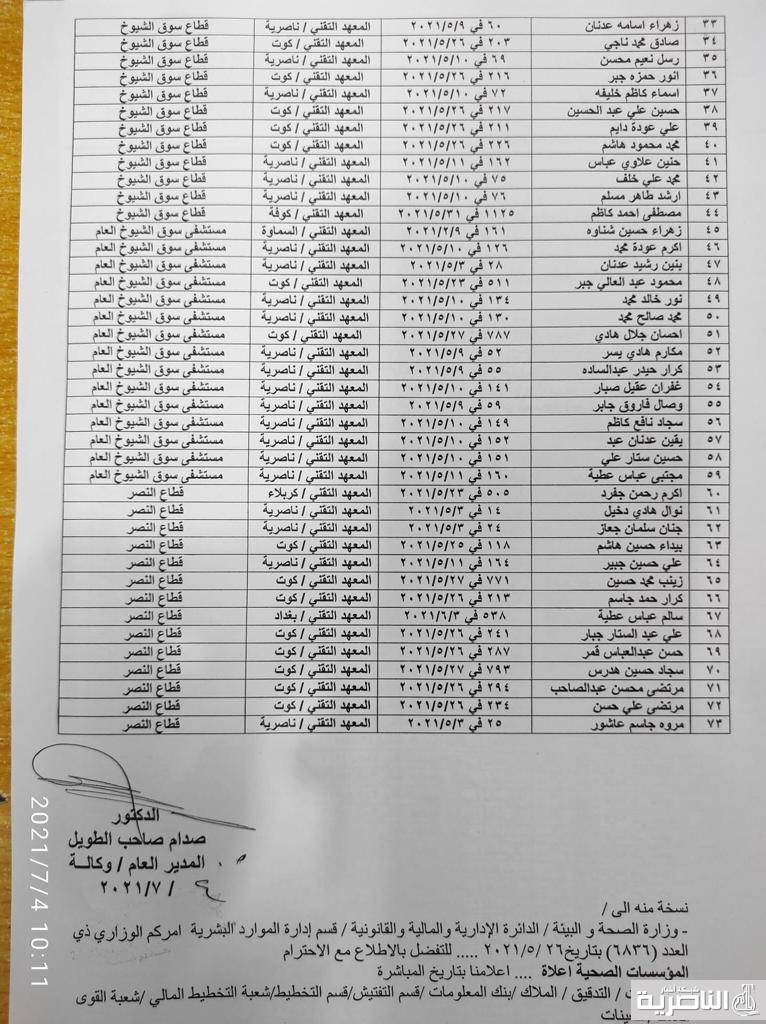 ٣٣ زهراء اسامه عدنان ٦٠ في ٢٠٢١/٥/٩ المعهد التقني / ناصرية قطاع سوق الشيوخ
٣٤ صادق محمد ناجي ٢٠٣ في ٢٠٢١/٥/٢٦ المعهد التقني / كوت قطاع سوق الشيوخ
٣٥ رسل نعيم محسن ٦٩ في ٢٠٢١/٥/١٠ المعهد التقني / ناصرية قطاع سوق الشيوخ
٣٦ انور حمزه جبر ٢١٦ في ٢٠٢١/٥/٢٦ المعهد التقني / كوت قطاع سوق الشيوخ
٣٧ اسماء كاظم خليفه ٧٢ في ٢٠٢١/٥/١٠ المعهد التقني / ناصرية قطاع سوق الشيوخ
٣٨ حسين علي عبد الحسين ٢١٧ في ٢٠٢١/٥/٢٦ المعهد التقني / كوت قطاع سوق الشيوخ
٣٩ علي عودة دايم ٢١١ في ٢٠٢١/٥/٢٦ المعهد التقني / كوت قطاع سوق الشيوخ
٤٠ محمد محمود هاشم ٢٢٦ في ٢٠٢١/٥/٢٦ المعهد التقني / كوت قطاع سوق الشيوخ
٤١ حنين علاوي عباس ١٦٢ في ٢٠٢١/٥/١١ المعهد التقني / ناصرية قطاع سوق الشيوخ
٤٢ محمد علي خلف ٧٥ في ٢٠٢١/٥/١٠ المعهد التقني / ناصرية قطاع سوق الشيوخ
٤٣ ارشد طاهر مسلم ٧٦ في ٢٠٢١/٥/١٠ المعهد التقني / ناصرية قطاع سوق الشيوخ
٤٤ مصطفى احمد كاظم ١١٢٥ في ٢٠٢١/٥/٣١ المعهد التقني / كوفة قطاع سوق الشيوخ
٤٥ زهراء حسين شناوه ١٦١ في ٢٠٢١/٢/٩ المعهد التقني / السماوة مستشفى سوق الشيوخ العام
٤٦ اكرم عودة محمد ١٢٦ في ٢٠٢١/٥/١٠ المعهد التقني / ناصرية مستشفى سوق الشيوخ العام
٤٧ بنين رشيد عدنان ٢٨ في ٢٠٢١/٥/٣ المعهد التقني / ناصرية مستشفى سوق الشيوخ العام
٤٨ محمود عبد العالي جبر ٥١١ في ٢٠٢١/٥/٢٣ المعهد التقني / كوت مستشفى سوق الشيوخ العام
٤٩ نور خالد محمد ١٣٤ في ٢٠٢١/٥/١٠ المعهد التقني / ناصرية مستشفى سوق الشيوخ العام
٥٠ محمد صالح محمد ١٣٠ في ٢٠٢١/٥/١٠ المعهد التقني / ناصرية مستشفى سوق الشيوخ العام
٥١ احسان جلال هادي ٧٨٧ في ٢٠٢١/٥/٢٧ المعهد التقني / كوت مستشفى سوق الشيوخ العام
٥٢ مكارم هادي يسر ٥٢ في ٢٠٢١/٥/٩ المعهد التقني / ناصرية مستشفى سوق الشيوخ العام
٥٣ كرار حيدر عبدالساده ٥٥ في ٢٠٢١/٥/٩ المعهد التقني / ناصرية مستشفى سوق الشيوخ العام
٥٤ غفران عقيل صبار ١٤١ في ٢٠٢١/٥/١٠ المعهد التقني / ناصرية مستشفى سوق الشيوخ العام
٥٥ وصال فاروق جابر ٥٩ في ٢٠٢١/٥/٩ المعهد التقني / ناصرية مستشفى سوق الشيوخ العام
٥٦ سجاد نافع كاظم ١٤٩ في ٢٠٢١/٥/١٠ المعهد التقني / ناصرية مستشفى سوق الشيوخ العام
٥٧ يقين عدنان عبد ١٥٢ في ٢٠٢١/٥/١٠ المعهد التقني / ناصرية مستشفى سوق الشيوخ العام
٥٨ حسين ستار علي ١٥١ في ٢٠٢١/٥/١٠ المعهد التقني / ناصرية مستشفى سوق الشيوخ العام
٥٩ مجتبى عباس عطية ١٦٠ في ٢٠٢١/٥/١١ المعهد التقني / ناصرية مستشفى سوق الشيوخ العام
٦٠ اكرم رحمن جفرد ٥٠٥ في ٢٠٢١/٥/٢٣ المعهد التقني / كربلاء قطاع النصر
٦١ نوال هادي دخيل ١٤ في ٢٠٢١/٥/٣ المعهد التقني / ناصرية قطاع النصر
٦٢ جنان سلمان جعاز ٢٤ في ٢٠٢١/٥/٣ المعهد التقني / ناصرية قطاع النصر
٦٣ بيداء حسين هاشم ١١٨ في ٢٠٢١/٥/٢٥ المعهد التقني / كوت قطاع النصر
٦٤ علي حسين جبير ١٦٤ في ٢٠٢١/٥/١١ المعهد التقني / ناصرية قطاع النصر
٦٥ زينب محمد حسين ٧٧١ في ٢٠٢١/٥/٢٧ المعهد التقني / كوت قطاع النصر
٦٦ كرار حمد جاسم ٢١٣ في ٢٠٢١/٥/٢٦ المعهد التقني / كوت قطاع النصر
٦٧ سالم عباس عطية ٥٣٨ في ٢٠٢١/٦/٣ المعهد التقني / بغداد قطاع النصر
٦٨ علي عبد الستار جبار ٢٤١ في ٢٠٢١/٥/٢٦ المعهد التقني / كوت قطاع النصر
٦٩ حسن عبدالعباس قمر ٢٨٧ في ٢٠٢١/٥/٢٦ المعهد التقني / كوت قطاع النصر
٧٠ سجاد حسين هدرس ٧٩٣ في ٢٠٢١/٥/٢٧ المعهد التقني / كوت قطاع النصر
٧١ مرتضى محسن عبدالصاحب ٢٩٤ في ٢٠٢١/٥/٢٦ المعهد التقني / كوت قطاع النصر
٧٢ مرتضى علي حسن ٢٣٤ في ٢٠٢١/٥/٢٦ المعهد التقني / كوت قطاع النصر
٧٣ مروه جاسم عاشور ٢٥ في ٢٠٢١/٥/٣ المعهد التقني / ناصرية قطاع النصر
الدكتور
صدام صاحب الطويل
المدير العام / وكالـة
٤ / ٢٠٢١/٧
نسخة منه الى /
- وزارة الصحة و البيئة / الدائرة الإدارية والمالية والقانونية / قسم إدارة الموارد البشرية امركم الوزاري ذي
العدد (٦٨٣٦) بتاريخ٢٦ /٢٠٢١/٥ ..... للتفضل بالاطلاع مع الاحترام
المؤسسات الصحية اعلاة .... اعلامنا بتاريخ المباشرة
/ التدقيق / الملاك /بنك المعلومات /قسم التفتيش/قسم التخطيط/شعبة التخطيط المالي /شعبة القوى
2021/7/4 10:11
شبكة اخبار
الناصرية